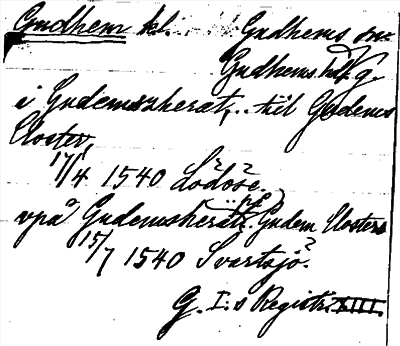 Gudhem kl. Gudhems sn.
Gudhems hd. g.
i Gudemsherat, .. till Gudems
Closter,
17/4 1540 Lödöse.
vpå Gudemsherätz Gudem Closters
15/7 1540 Svartsjö?
G. I:s Registr. XIII.